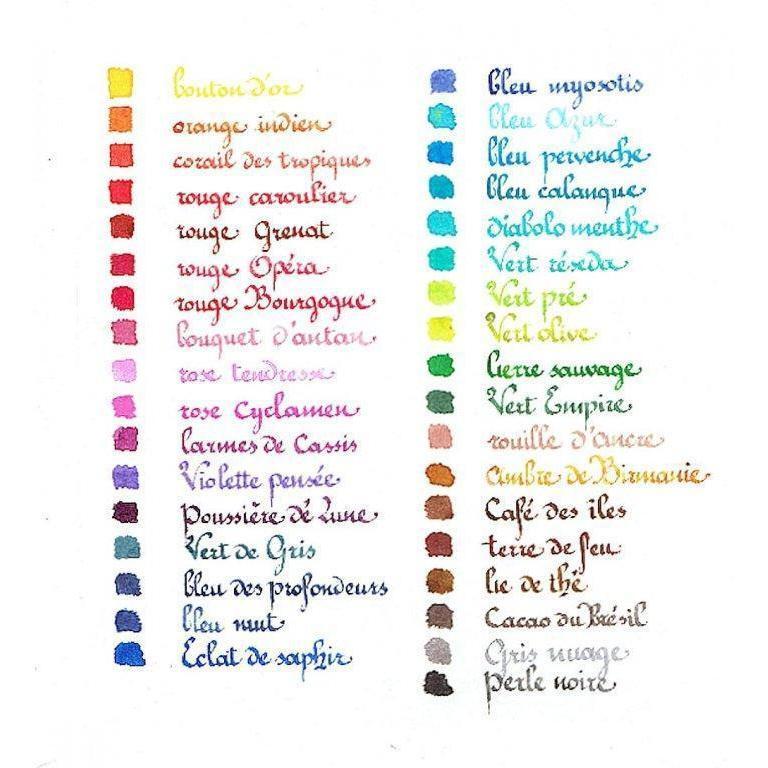 bouton d'or
orange indien
corail des tropiques
rouge caroubier
rouge Grenat
rouge Opéra
rouge Bourgogne
bouquet d'antan
rose tendresse
rose Cyclamen
larmes de Cassis
Violette pensée
Poussière de Lune
Vert de Gris
bleu des profondeurs
bleu nuit
Eclat de saphir
bleu myosotis
bleu Azur
bleu pervenche
bleu calanque
diabolo menthe
Vert réséda
Vert pré
Vert olive
lierre sauvage
Vert Empire
rouille d'ancre
ambre de Birmanie
Café des iles
terre de feu
lie de thé
Cacao du Brésil
Gris nuage
Perle noire